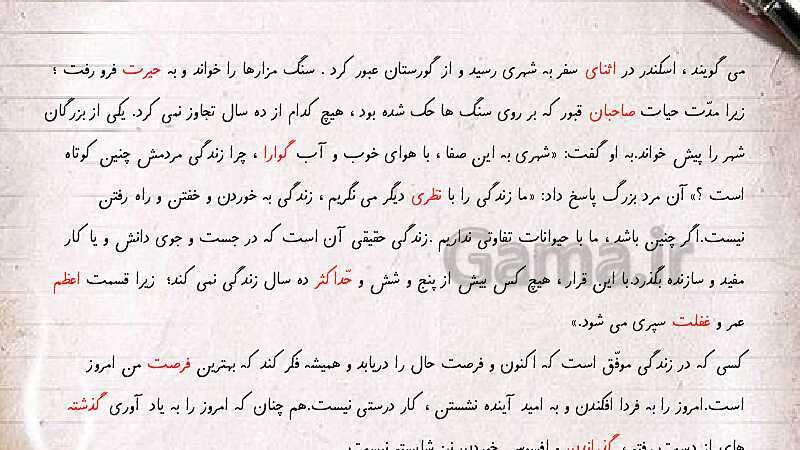 می گویند ، اسکندر در اثنای سفر به شهری رسید و از گورستان عبور کرد . سنگ مزارها را خواند و به حیرت فرو رفت ؛
زیرا مدّت حیات صاحبان قبور که بر روی سنگ ها حک شده بود ، هیچ کدام از ده سال تجاوز نمی کرد. یکی از بزرگان
شهر را پیش خواند.به او گفت: «شهری به این صفا ، با هوای خوب و آب گوارا ، چرا زندگی مردمش چنین کوتاه
است ؟» آن مرد بزرگ پاسخ داد: «ما زندگی را با نظری دیگر می نگریم ، زندگی به خوردن و خفتن و راه رفتن
نیست.اگر چنین باشد ، ما با حیوانات تفاوتی نداریم .زندگی حقیقی آن است که در جست و جوی دانش و یا کار
مفید و سازنده بگذرد.با این قرار ، هیچ کس بیش از پنج و شش و حّداکثر ده سال زندگی نمی کند؛ زیرا قسمت اعظم
عمر و غفلت سپری می شود.»
کسی که در زندگی موفّق است که اکنون و فرصت حال را دریابد و همیشه فکر کند که بهترین فرصت من امروز
است.امروز را به فردا افکندن و به امید آینده نشستن ، کار درستی نیست.هم چنان که امروز را به یاد آوری گذشته
های از دست رفته ، گذراندن و افسوس خوردن نیز شایسته نیست.
Gama.ir